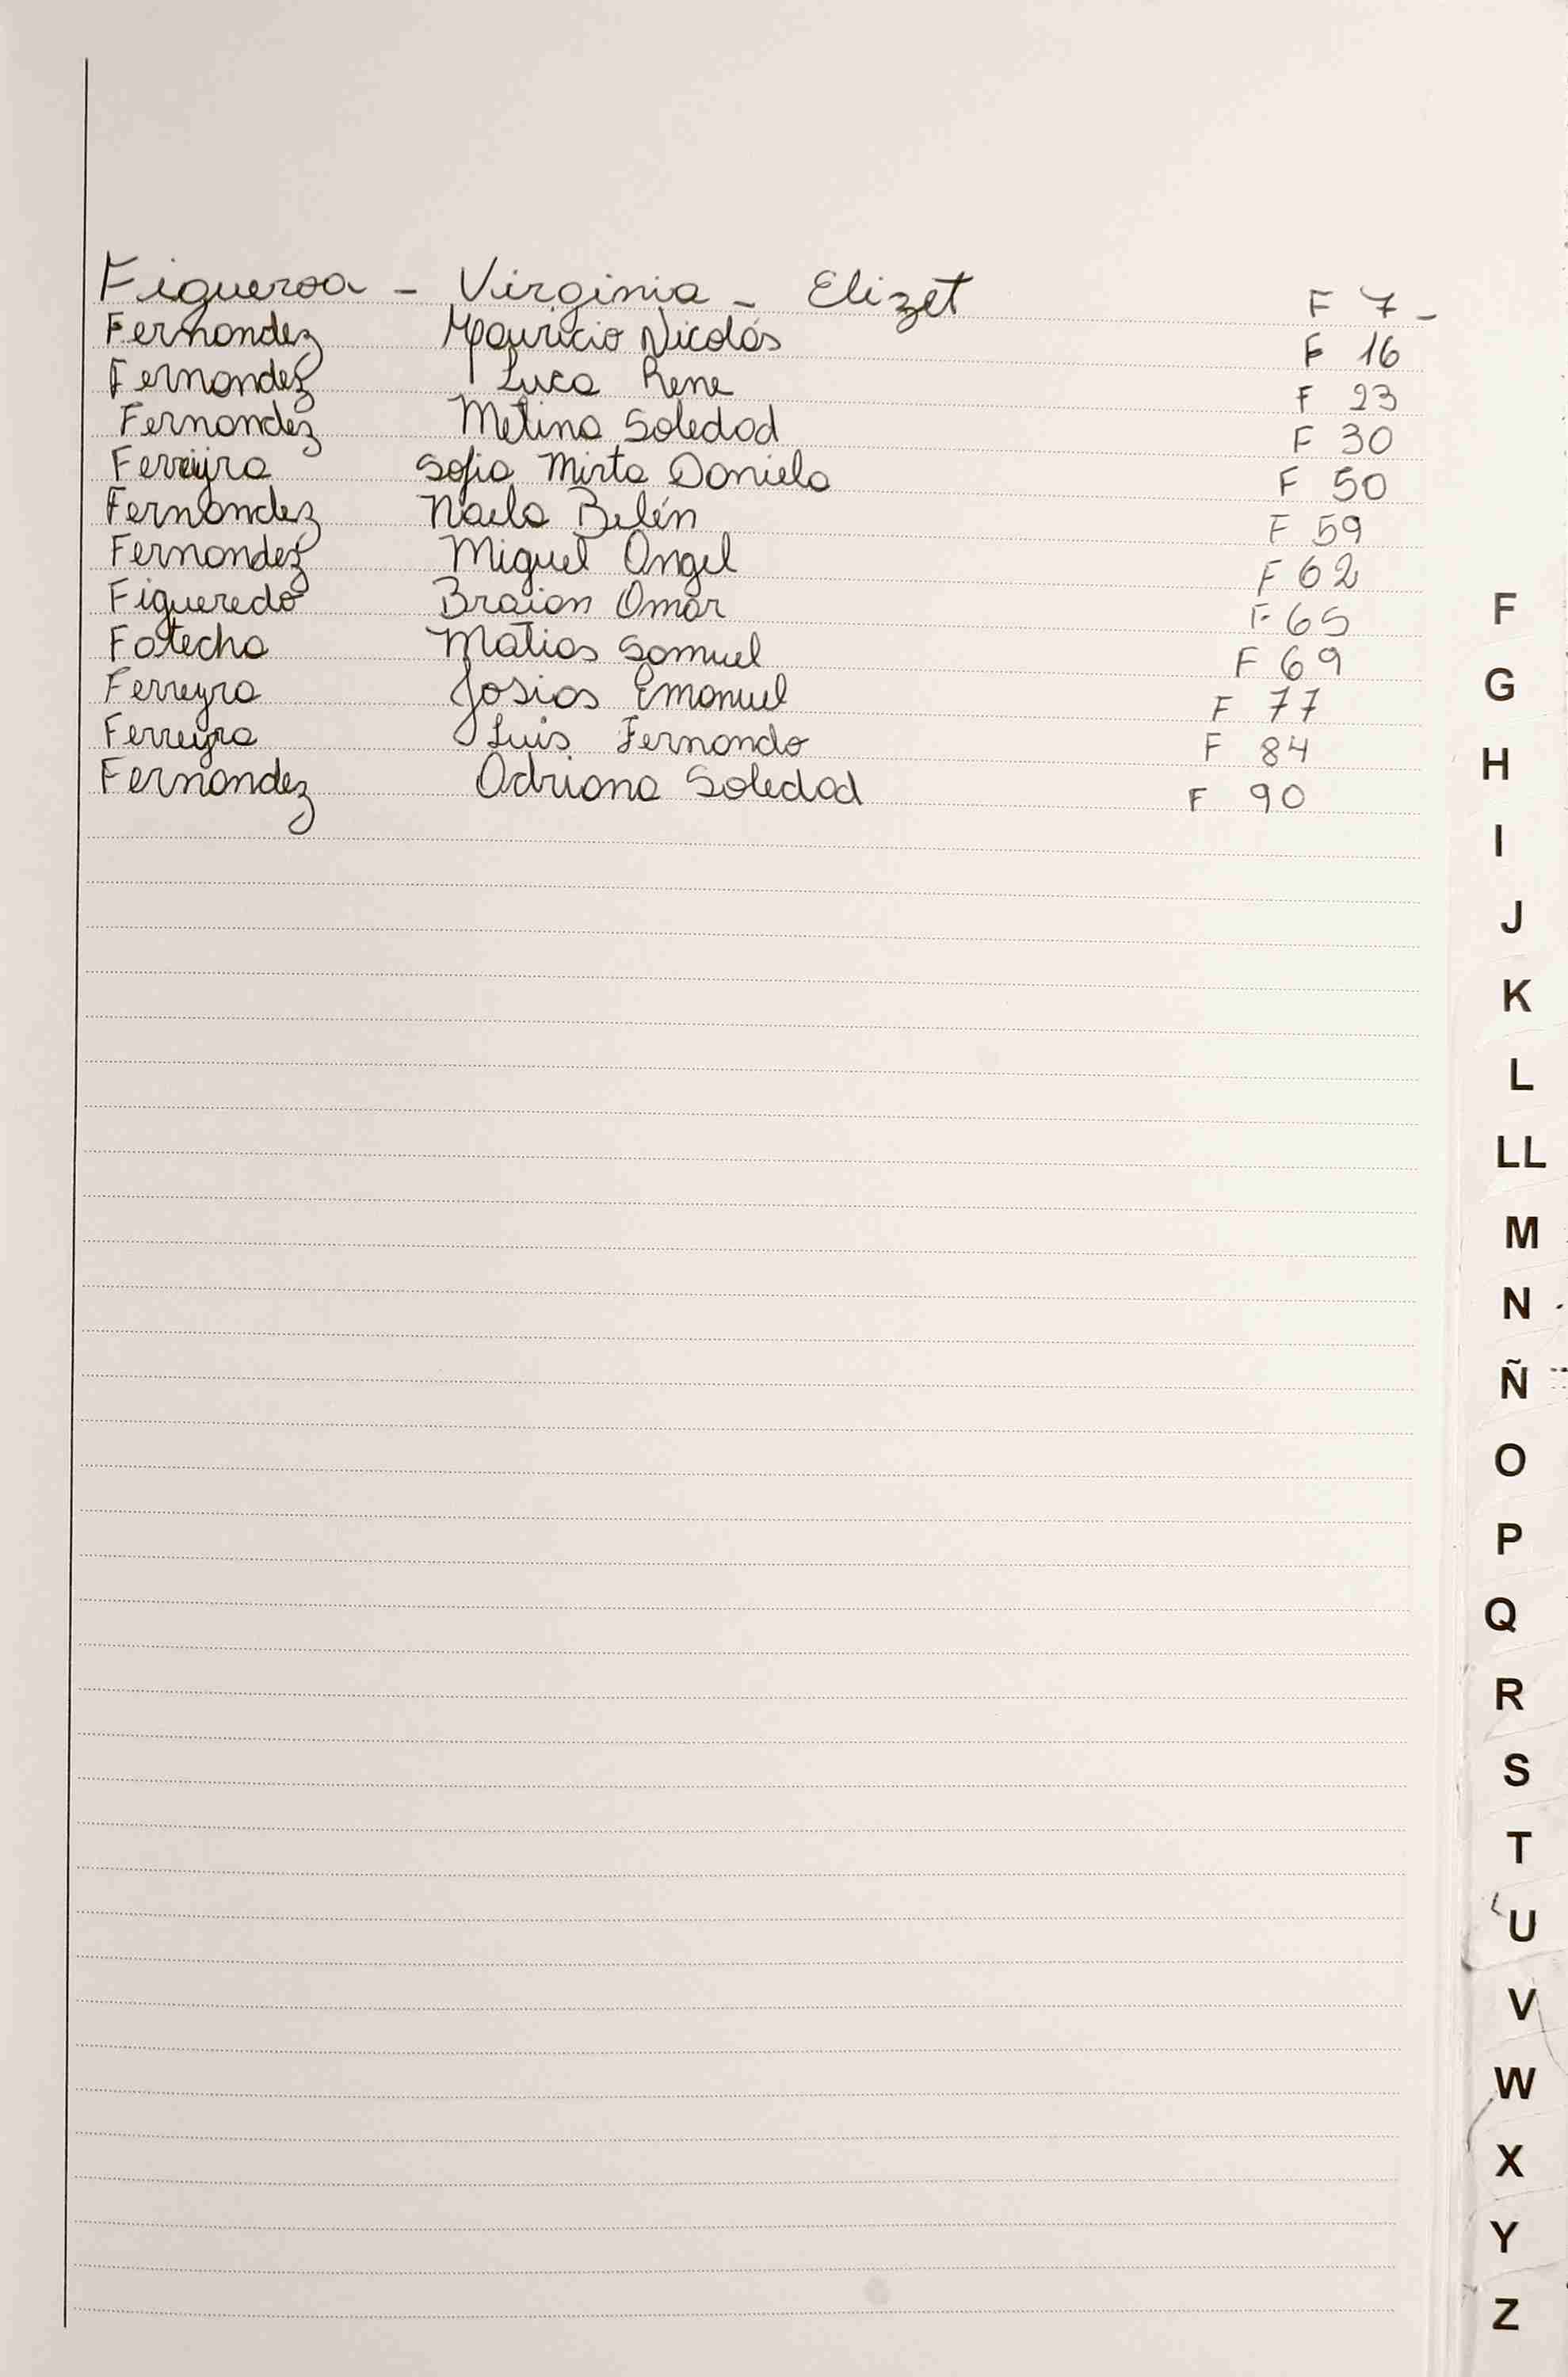 Figueroa - Virginia - Elizet F 7-
Fernandez Mauricio Nicolás F 16
Fernandez Luca Rene F 23
Fernandez Melina Soledad F 30
Ferreyra Sofia Mirta Daniela F 50
Fernandez Naela Belén F 59
Fernandez Miguel Angel F 62
Figueredo Braian Omar F 65
Fatecha Matias Samuel F 69
Ferreyra Josias Emanuel F 77
Ferreyra Luis Fernando F 84
Fernandez Adriana Soledad F 90
F
G
H
I
J
K
L
LL
M
N
Ñ
O
P
Q
R
S
T
U
V
W
X
Y
Z